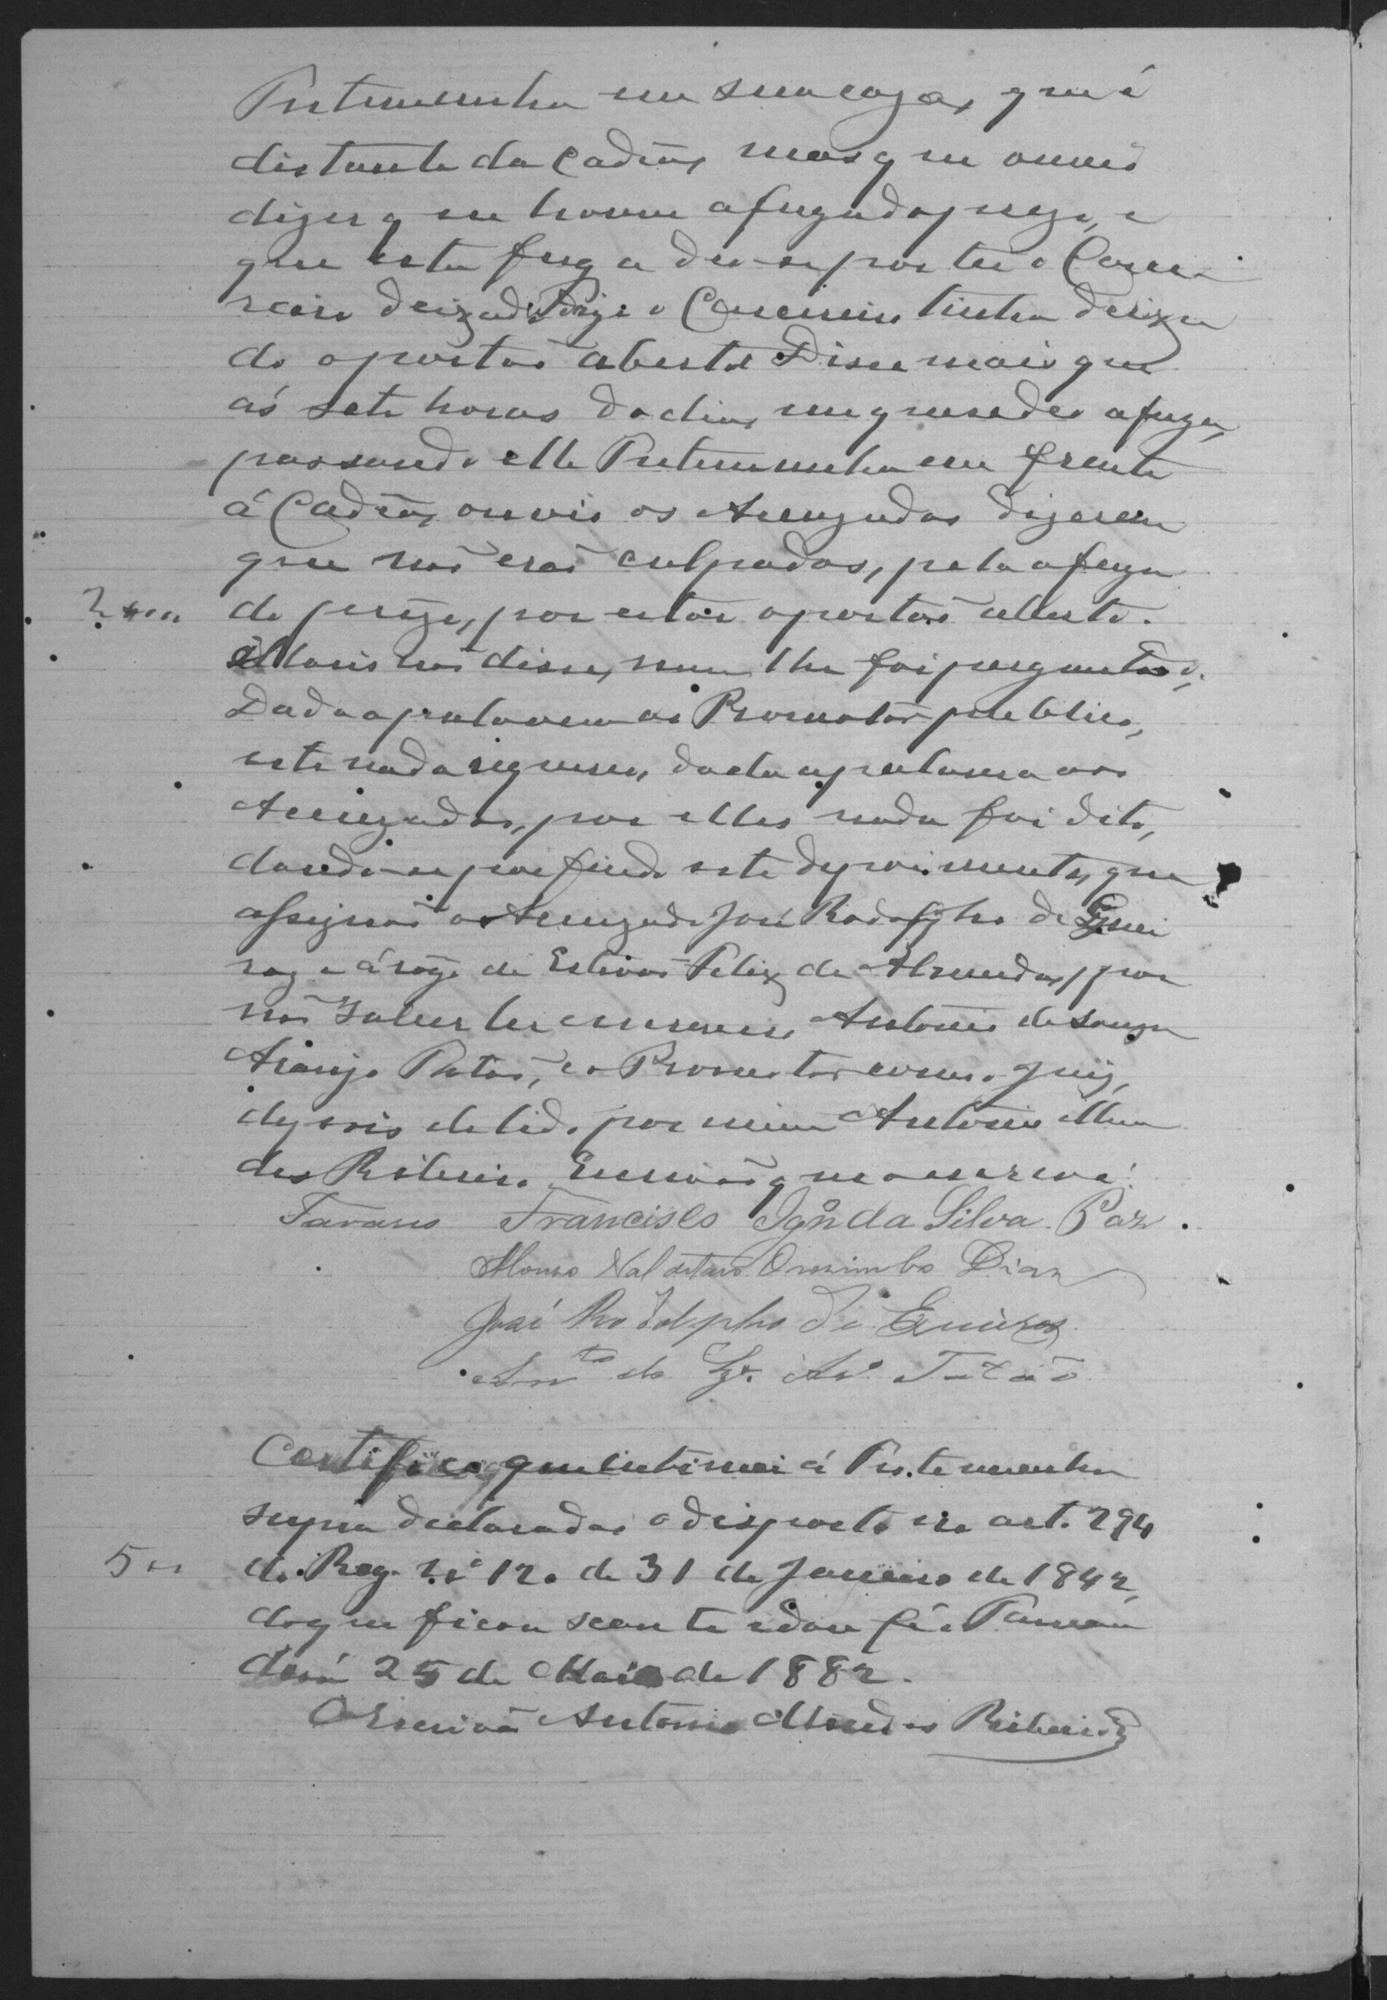 Testemunha em sua caza, que é
distante da Cadêa, mas que ouvio
dizer que houve a fuga do prezo, e
que esta fuga deo-se por ter o Carce
reiro deixado digo o Carcereiro tinha deixa
do o portão aberto. Disse mais que
ás sete horas do dia, em que se deo a fuga,
passando elle Testemunha em frente
á Cadêa, ouvio os Accuzados dizerem
que não erão culpados, pela a fuga
do prezo, por estar o portão aberto.
E Mais não disse, nem lhe foi perguntado,
Dada a palavra ao Promotor publico,
este nada requereu, dada a palavra aos
Accuzados, por elles nada foi dito,
dando-se por findo este depoimento, que
assignão o Accuzado José Rodolpho de Quei
roz e á rogo de Estevão Felix de Almeida, por
não saber ler e escrever, Antonio de Souza
Araujo Tatão, e o Promotor com o Juiz,
depois de lido por mim Antonio Men
des Ribeiro Escrivão que o escrevi.
Tavares Francisco Ign da Silva Paz.
Dias
José Rodolpho de Queiroz
Anto de Sz. Ar.o Tatão
Certifico que intimei á Testemunha
supra declarada o disposto no art. 294
do Reg. n.o 120 de 31 de Janeiro de 1842,
do que ficou sciente e dou fé.
25 de Maio de 1882.
O Escrivão Antonio Mendes Ribeiro